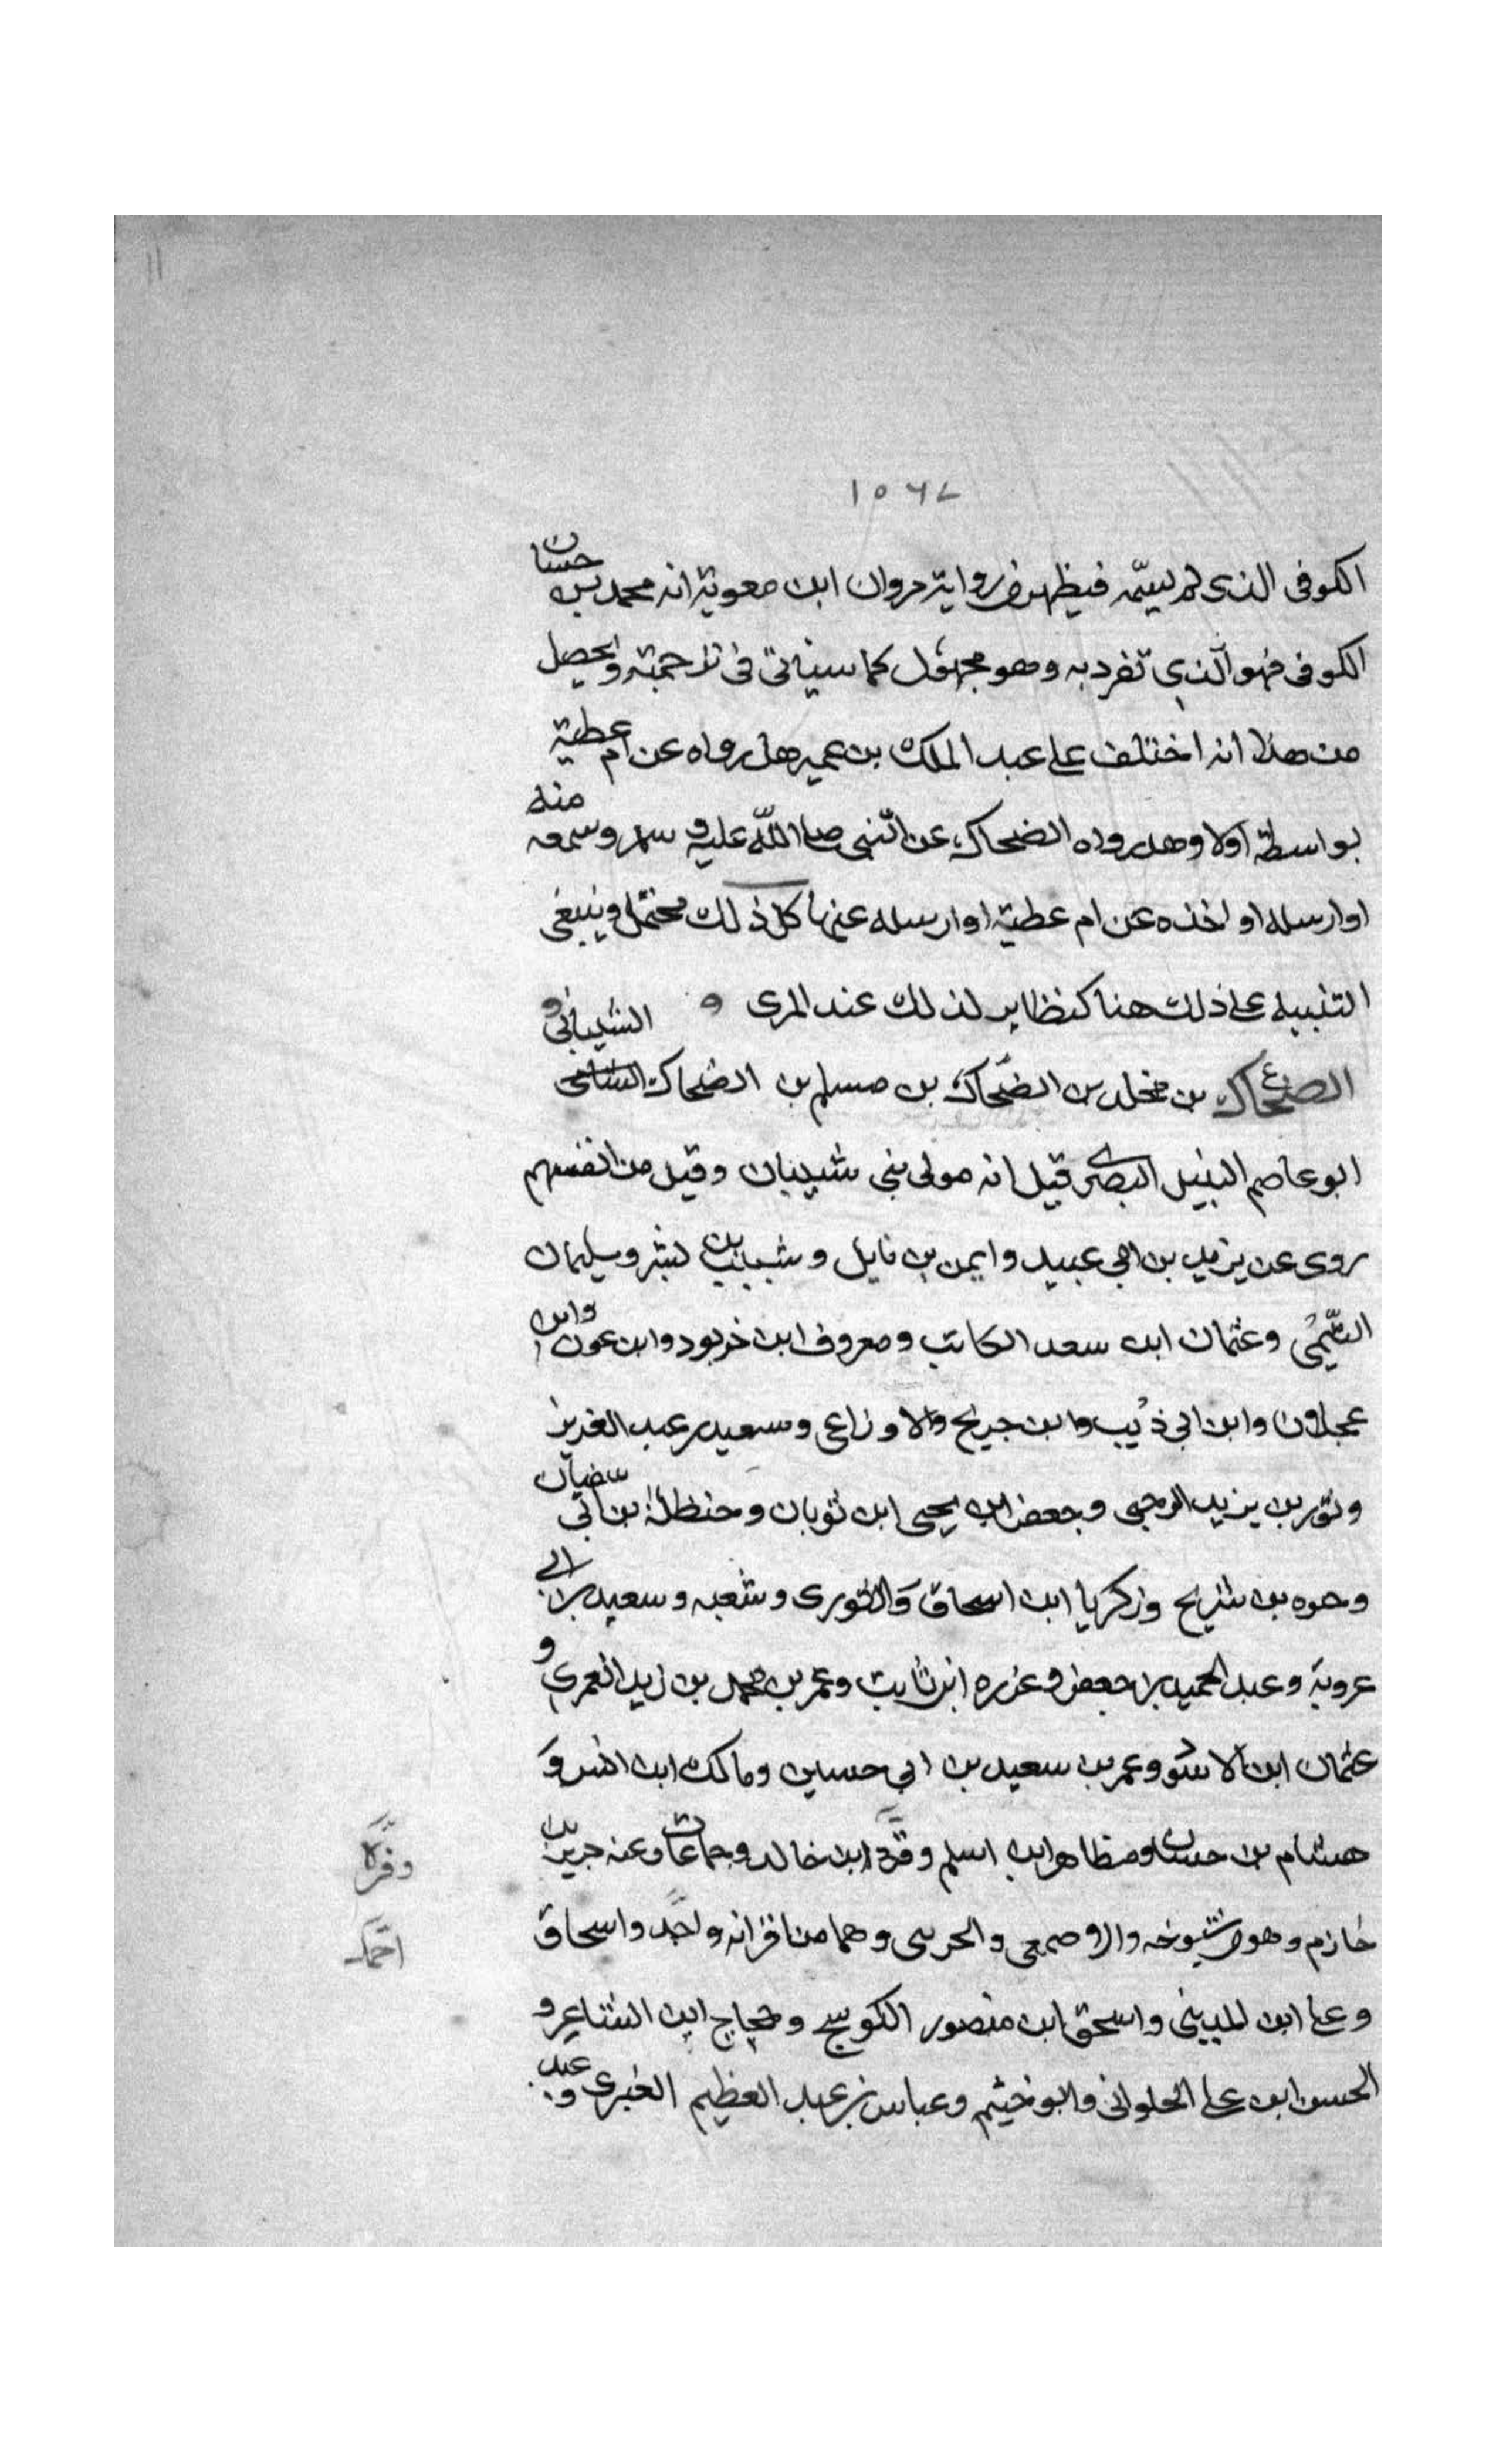 ١١
١٥٦٧
الكوفى الذى لم يسمّه فيظهر من رواية مروان ابن معوية انه محمد بن حسان
الكوفى فهو الذي تفرد به وهو مجهول كما سياتى فى ترجمته ويحصل
من هذا انه اختلف على عبد الملك بن عمير هل رواه عن ام عطية
بواسطة اولا وهل رواه الضحاك عن النبى صلى اللّه عليه و سلم وسمعه منه
او ارسله او اخذه عن ام عطية او ارسله عنها كل ذلك محتمل وينبغى
التنبيه على ذلك هنا كنظاير لذلك عند المزى و
الضحاك ع بن مخلد بن الضحاك بن مسلم بن الضحاك الشيبانى و
ابو عاصم النبيل البصرى قيل انه مولى بنى شيبان وقيل من انفسهم
روى عن يزيد بن ابي عبيد وايمن بن نايل و شبيب بن بشر وسليمان
التيمى وعثمان ابن سعد الكاتب ومعروف ابن خربود وابن عون وابن
عجلان وابن ابي ذئيب وابن جريج والاوزاعى وسعيد بن عبد العزيز
وثور بن يزيد الرحبى وجعفر ابن يحيى ابن ثوبان وحنظلة بن ابى سفيان
وحيوه بن شريح وزكريا ابن اسحاق والثورى وشعبه وسعيد بن ابى
عروبة وعبد الحميد بن جعفر وعزره ابن ثابت وعمر بن محمد بن زيد العمرى و
عثمان ابن الاسود وعمر بن سعيد بن ابي حسين ومالك ابن انس و
هشام بن حسان ومظاهر ابن اسلم وقرة ابن خالد وجماعات وعنه جرير بن
وقرَّه
حازم وهو من شيوخه والاصمعى والخريبى وهما من اقرانه واحمد واسحاق
احمد
وعلى ابن المدينى واسحق ابن منصور الكوسج وحجاج ابن الشاعر و
الحسن ابن على الحلوانى وابو خيثم وعباس بن عبد العظيم العنبرى وعبد